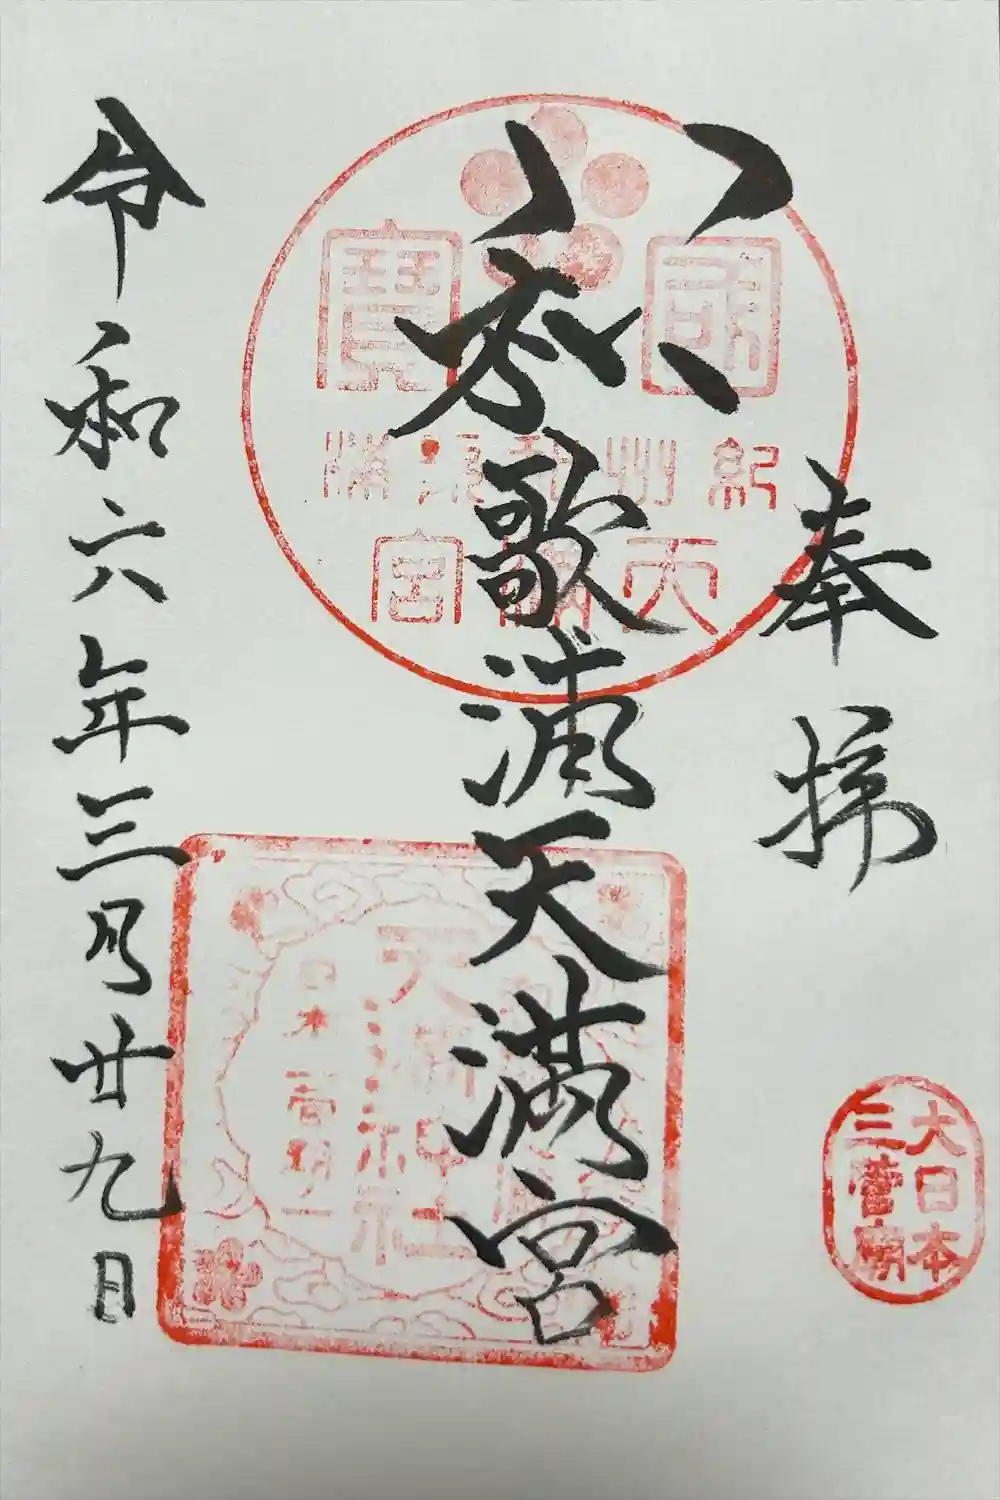 奉拝
和歌浦天満宮
令和六年三月廿九日
國寶
紀州和歌浦勝
天満宮
大日本
三菅廟